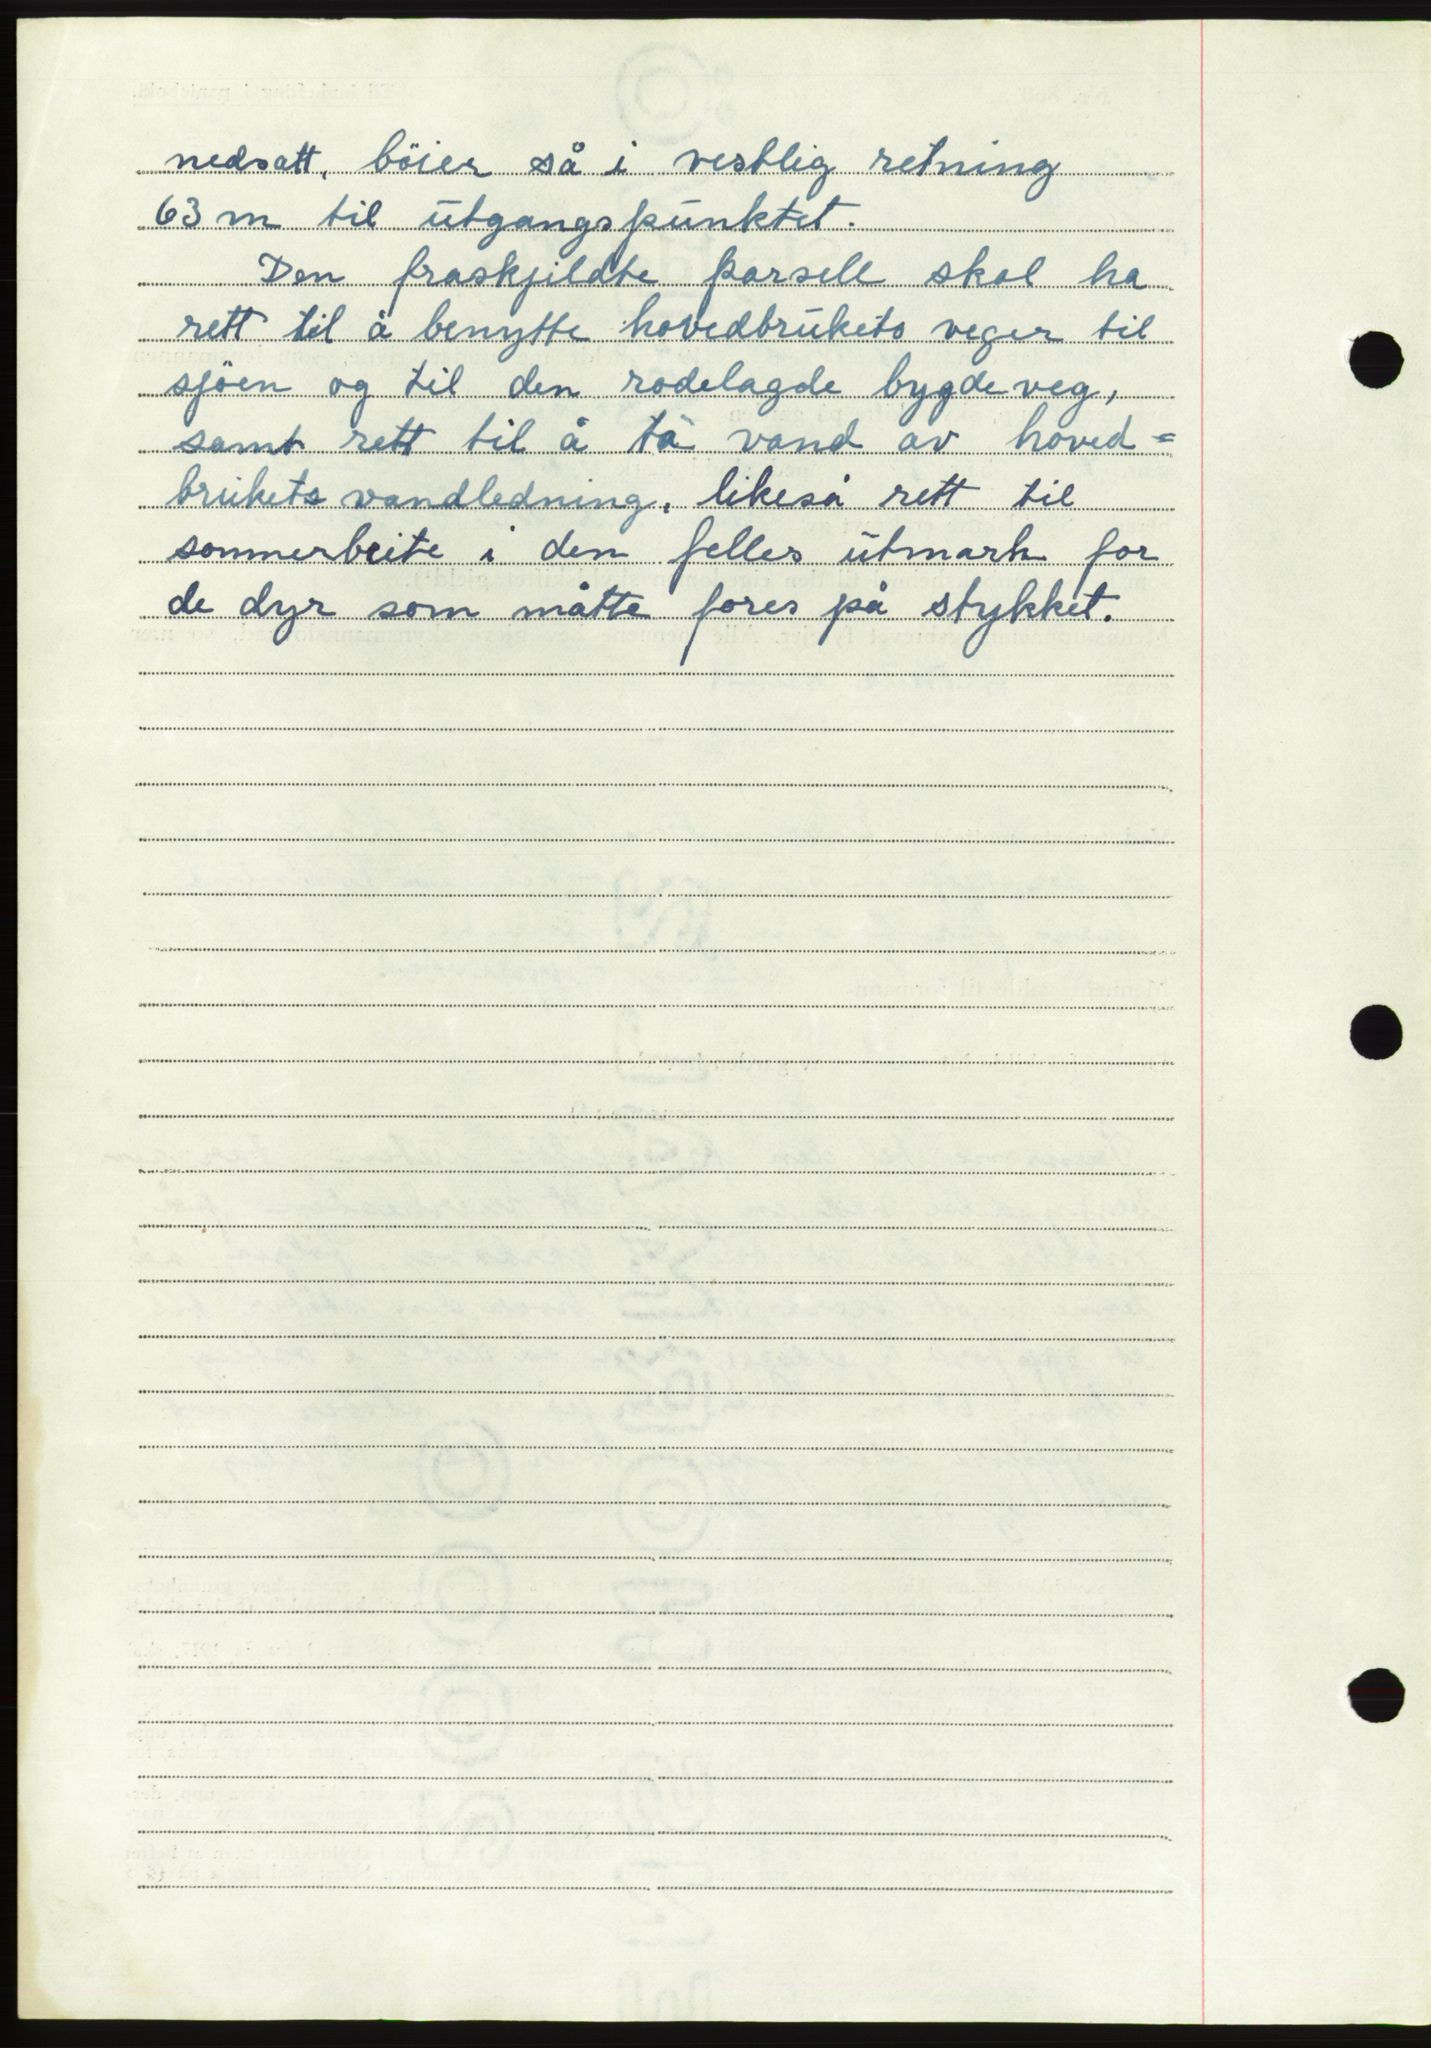 nedsatt, böier så i vestlig retning
63 m til utgangspunktet.
Den fraskjildte parsell skal ha
rett til å benytte hovedbrukets veger til
sjöen og til den rodelagde bygdeveg,
samt rett til å ta vand av hoved=
brukets vandledning, likeså rett til
sommerbeite i den felles utmark for
de dyr som måtte fores på stykket.